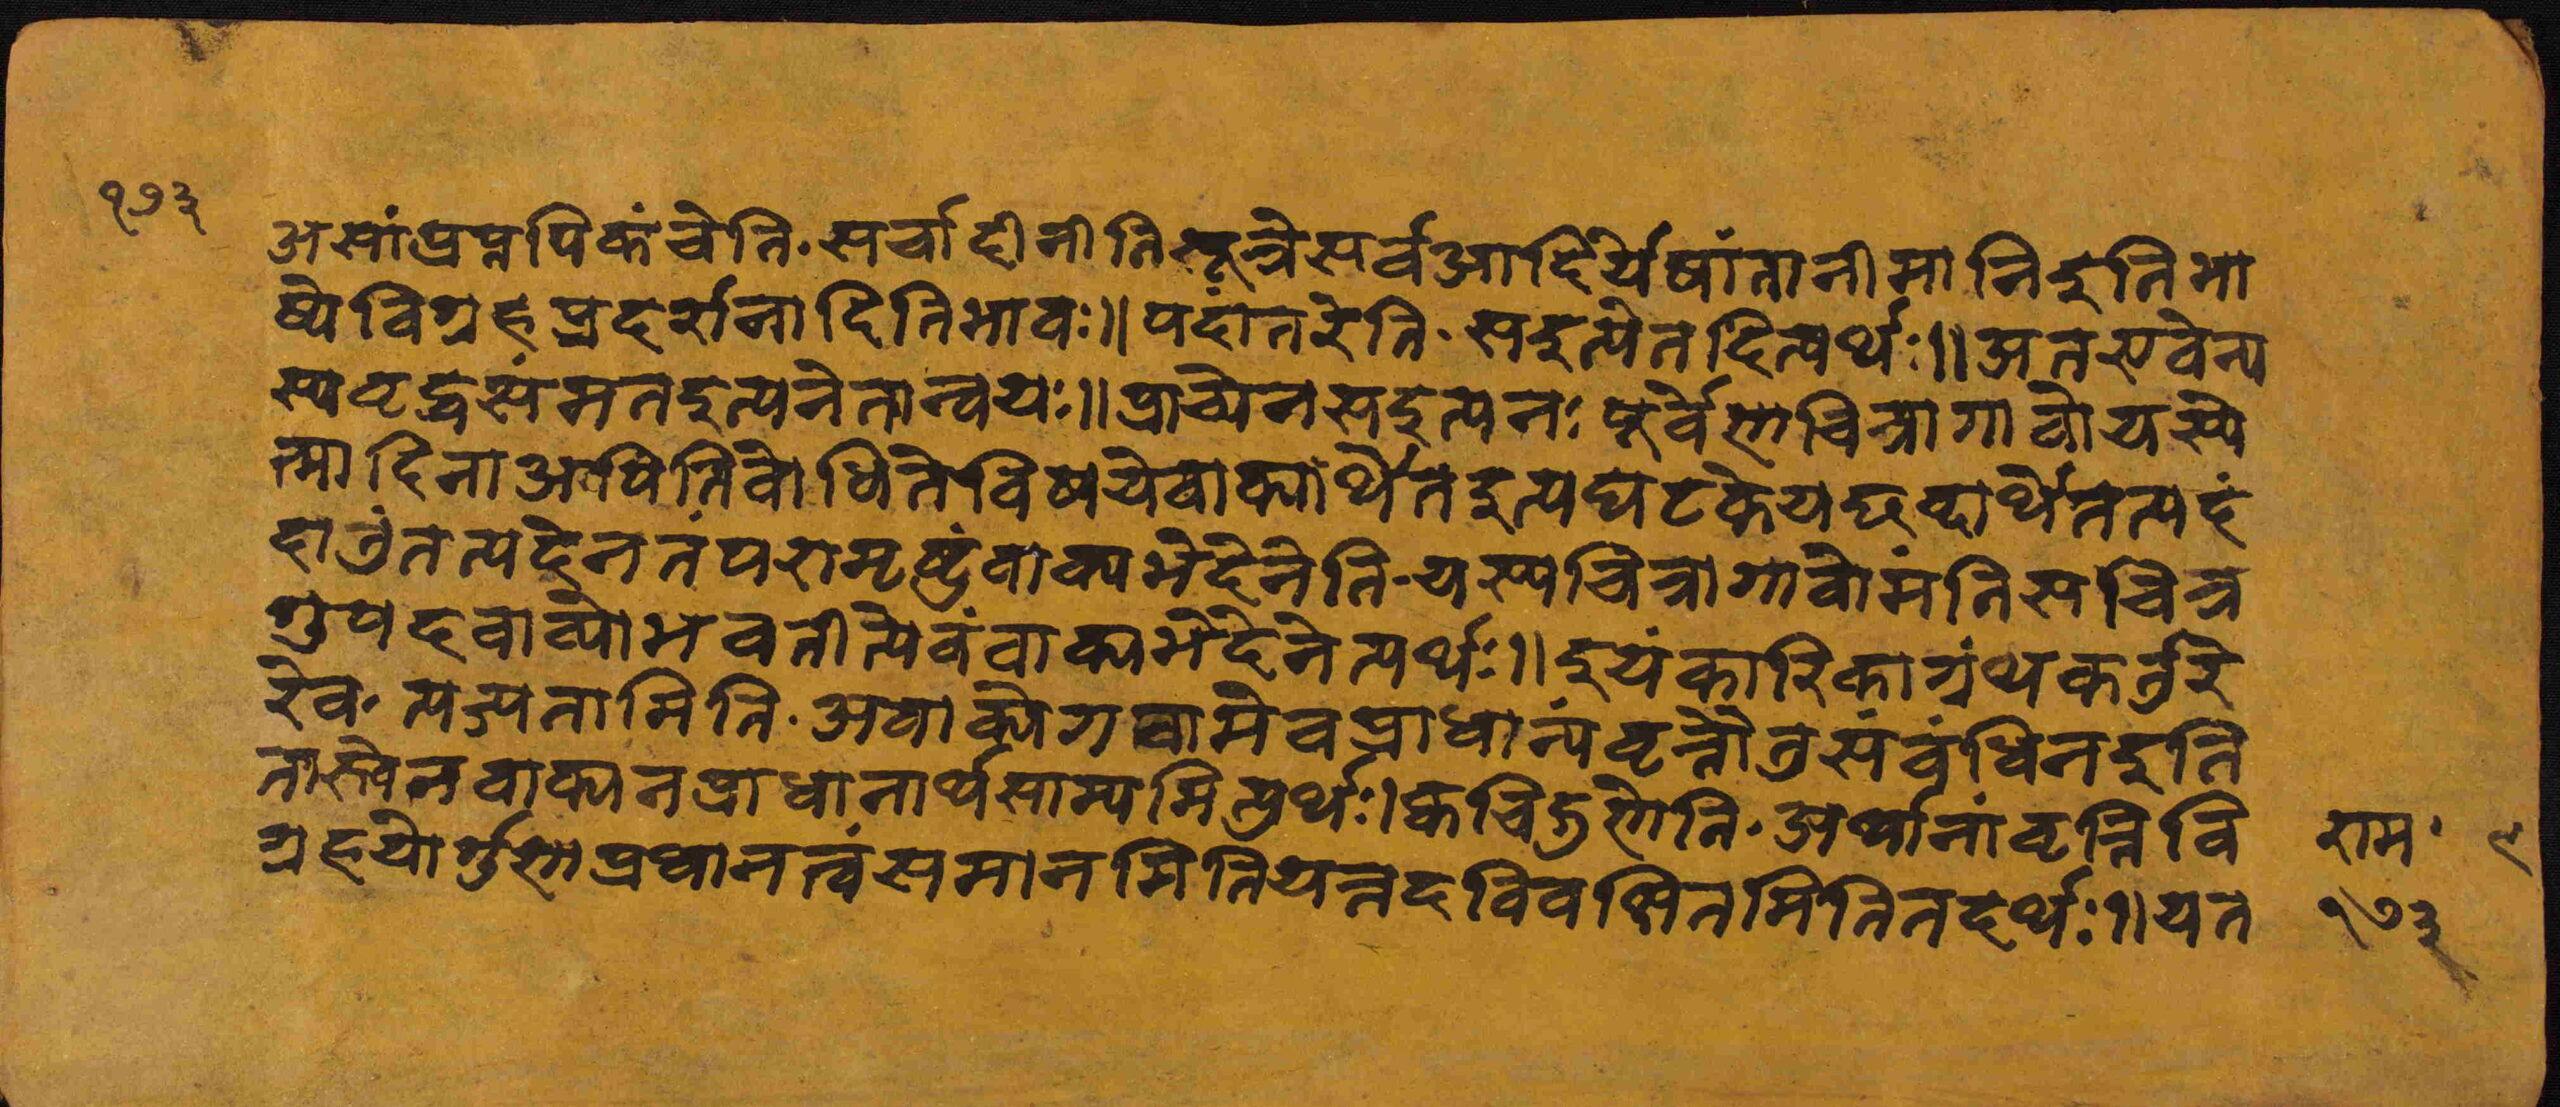 १७३
असांप्रप्नपिकंचेति. सर्वादीनीतिसूत्रेसर्वआदिर्येषांतानीमानिइतिभा
ष्येविग्रहप्रदर्शनादितिभावः॥पदांतरेति. सइत्येतदित्यर्थः॥अतएवेत्य
स्यवृद्धसंमतइत्यनेनान्वयः॥प्राच्येनसइत्यनः पूर्वेणचित्रागावोयस्ये
त्मादिनाअपितिबोधितेविषयेवाक्यार्थेतइत्यघटकेयछब्दार्थेतत्पदं
दातुंतत्पदेनतंपरामृष्टुंवाक्यभेदेनेति.यस्यचित्रागावोसंतिसचित्र
गुपदवाच्योभवतीत्येवंवाक्यभेदेनेत्यर्थः॥इयंकारिकाग्रंथकर्तुरे
रेव. त्यज्यतामिति. अवाक्येगवामेवप्राधान्यंवृत्तौतुसंबंधिनइति
नास्त्येनवाक्यनप्राधानार्थसाम्यमित्यर्थः।क्वचिद्गुणेति. अर्थानांवृत्तिवि
ग्रहयोर्गुणप्रधानत्वंसमानमितियत्तदविवक्षितमितितदर्थः॥यत
राम.
१७३